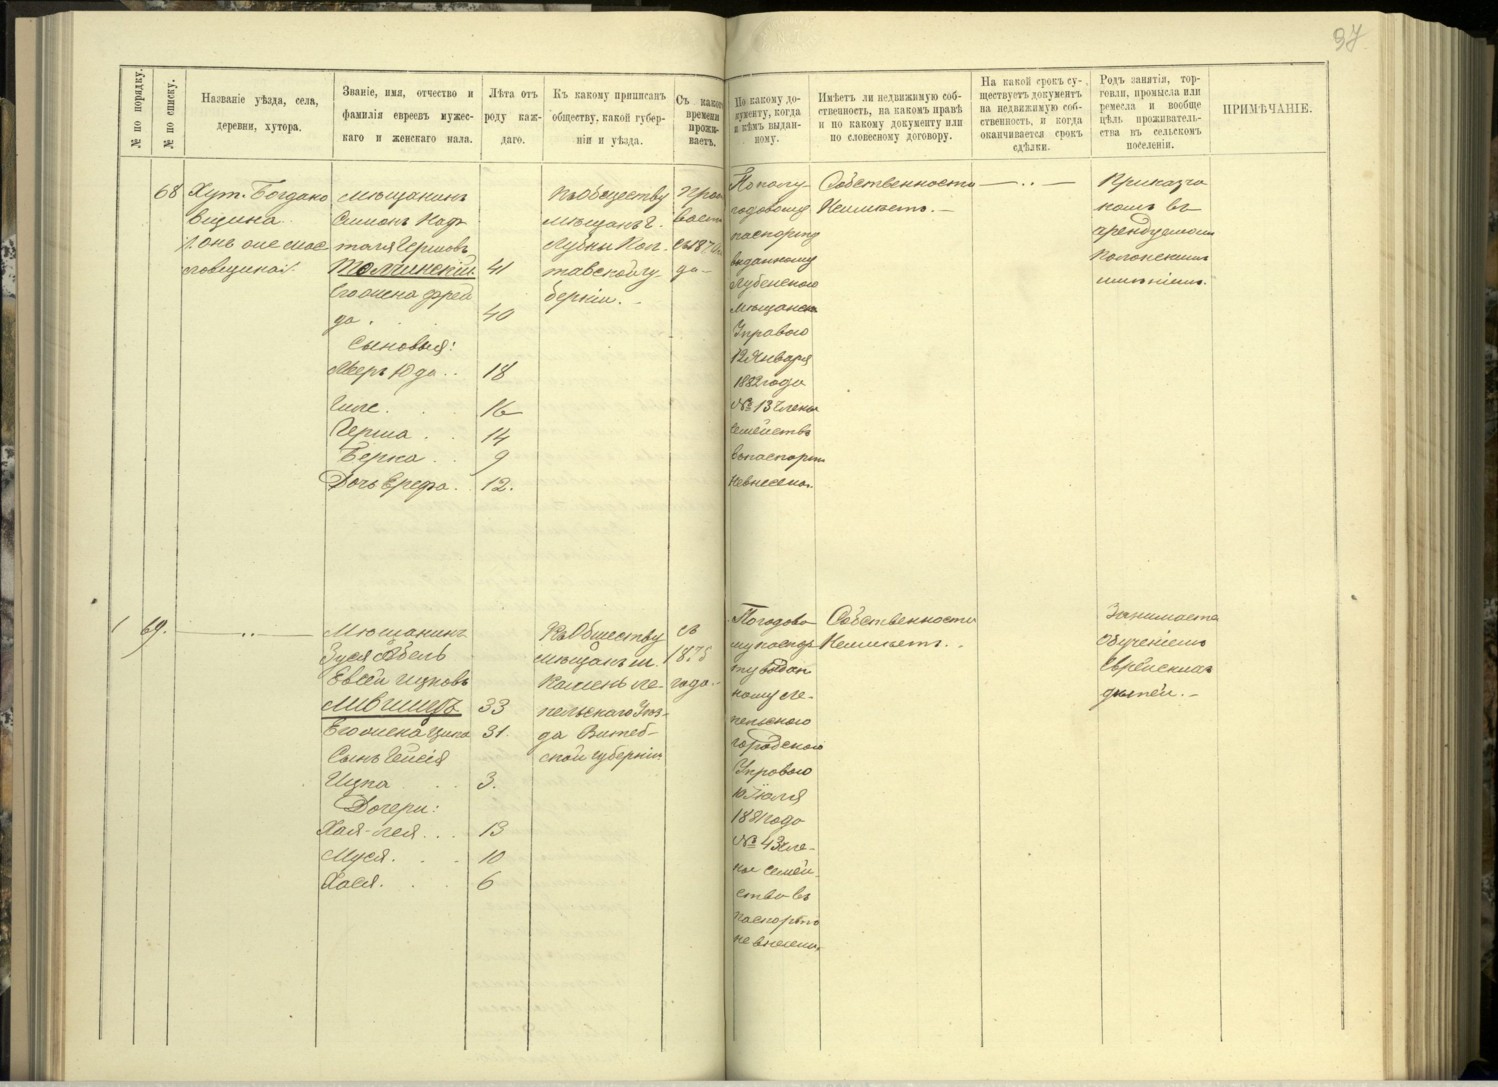 97.
№ по порядку.
№ по списку.
Названіе уѣзда, села,
деревни, хутора.
Званіе, имя, отчество и
фамилія евреевъ мужес-
каго и женскаго пала.
Лѣта отъ
роду каж-
даго.
Къ какому приписанъ
обществу, какой губер-
ніи и уѣзда.
Съ какого
времени
прожи-
ваетъ.
По какому до-
кументу, когда
и кѣмъ выдан-
ному.
Имѣетъ ли недвижимую соб-
ственность, на какомъ правѣ
и по какому документу или
по словесному договору.
На какой срокъ су-
ществуетъ документъ
на недвижимую соб-
ственность, и когда
оканчивается срокъ
сдѣлки.
Родъ занятія, тор-
говли, промысла или
ремесла и вообще
цѣль проживатель-
ства въ сельскомъ
поселеніи.
ПРИМѢЧАНІЕ.
68
Хут. Богдано
вщина
Мѣщанинъ
Симонъ
Гершовъ
41
Его жена Фрей
да.
40
Сыновья:
Меръ Юда..
18
Гиле.
16
Герша..
14
Берка..
9
Дочь Ерефа.
12.
Къ обществу
мѣщанъ г.
Лубны Пол-
тавской гу
берніи.
съ 1870
По полу
годовому
паспорту
выданному
Лубенскою
мѣщанск
Управою
12 Января
1882 года
№ 13 Члены
семейства
въ паспорт
не внесены.
Собственности
Неимѣетъ.—
Приказчи
комъ въ
арендуемомъ
имѣніемъ.
69.
Мѣщанинъ
Зуся Абель
Ицковъ
Лившицъ
33
Его жена Ципа
31.
Сынъ
Ицка
3.
Дочери:
Хая-Лея...
13
Муся.
10
Хася.
6
Къ Обществу
мѣщанъ м.
Камень Ле-
пельскаго Уѣз-
да Витеб-
ской губерніи
съ
1875
года..
По годово
му паспор
ту выдан
ному Ле-
пельскою
городскою
Управою
10 Іюля
1881 года
№ 43 Чле-
ны семей-
ства въ
паспортъ
не внесены.
Собственности
Неимѣетъ.
Занимается
обученіемъ
Еврейскихъ
дѣтей.—